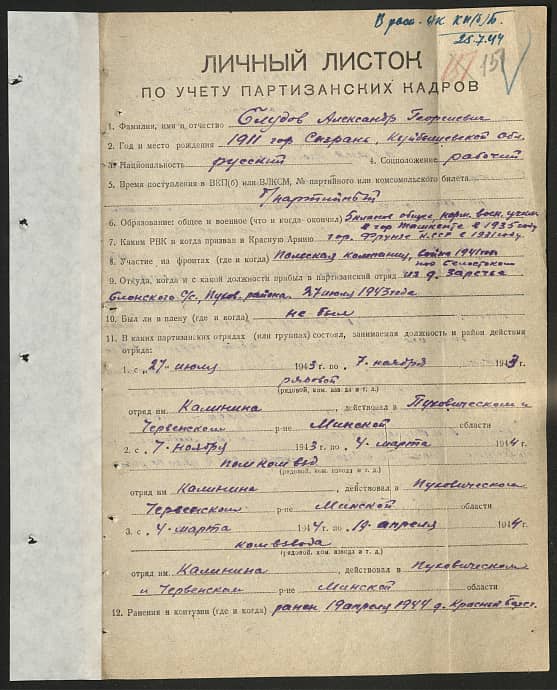 В расп. ЦК КП(б)Б.
25.7.44
15
ЛИЧНЫЙ ЛИСТОК
ПО УЧЕТУ ПАРТИЗАНСКИХ КАДРОВ
1. Фамилия, имя и отчество Блудов Александр Георгиевич
2. Год и место рождения 1911 гор Сызрань, Куйбышевской Обл.
3. Национальность русский 4. Соцположение рабочий
5. Время поступления в ВКП(б) или ВЛКСМ, № партийного или комсомольского билета
б/партийный
6. Образование: общее и военное (что и когда окончил) 5 классов общее, норм. воен. училище
в гор Ташкенте в 1935 году
7. Каким РВК и когда призван в Красную Армию гор. Фрунзе К.ССР в 1931 году.
8. Участие на фронтах (где и когда) Польская компания, война 1941 года
под Белостоком
9. Откуда, когда и с какой должности прибыл в партизанский отряд из д. Заречье
Блонского С/с, Пухов. района. 27 июля 1943 года
10. Был ли в плену (где и когда) не был
11. В каких партизанских отрядах (или группах) состоял, занимаемая должность и район действия
отряда:
1. с „27-июля 1943 г. по „7-ноября 1943
рядовой
(рядовой, ком. взвода и т. д.)
отряд им. Калинина, действовал в Пуховическом и
Червенском р-не Минской области
2. с „7-ноября 1943 г. по „4-марта 1944 г.
пом ком взв
(рядовой, ком. взвода и т. д.)
отряд им Калинина, действовал в Пуховическом
Червенском р-не Минской области
3. с „4-марта 1944 г. по „19-апреля 1944 г.
ком взвода
(рядовой, ком. взвода и т. д.)
отряд им. Калинина, действовал в Пуховическом
и Червенском р-не Минской области
12. Ранения и контузии (где и когда) ранен 19 апреля 1944 д. Красный